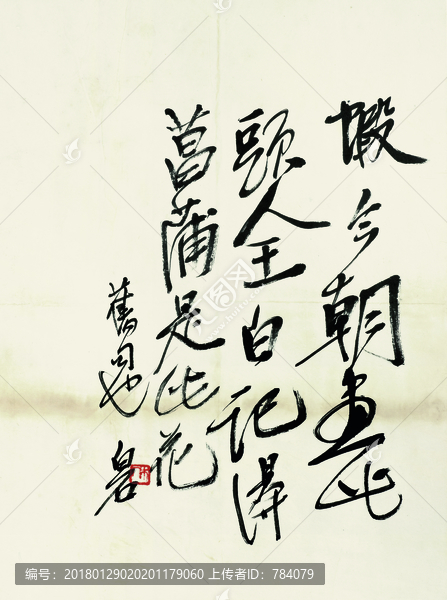 今朝畫此
頭人王白記得
菖蒲是此花
舊句也
编号：20180129020201179060 上传者ID：784079